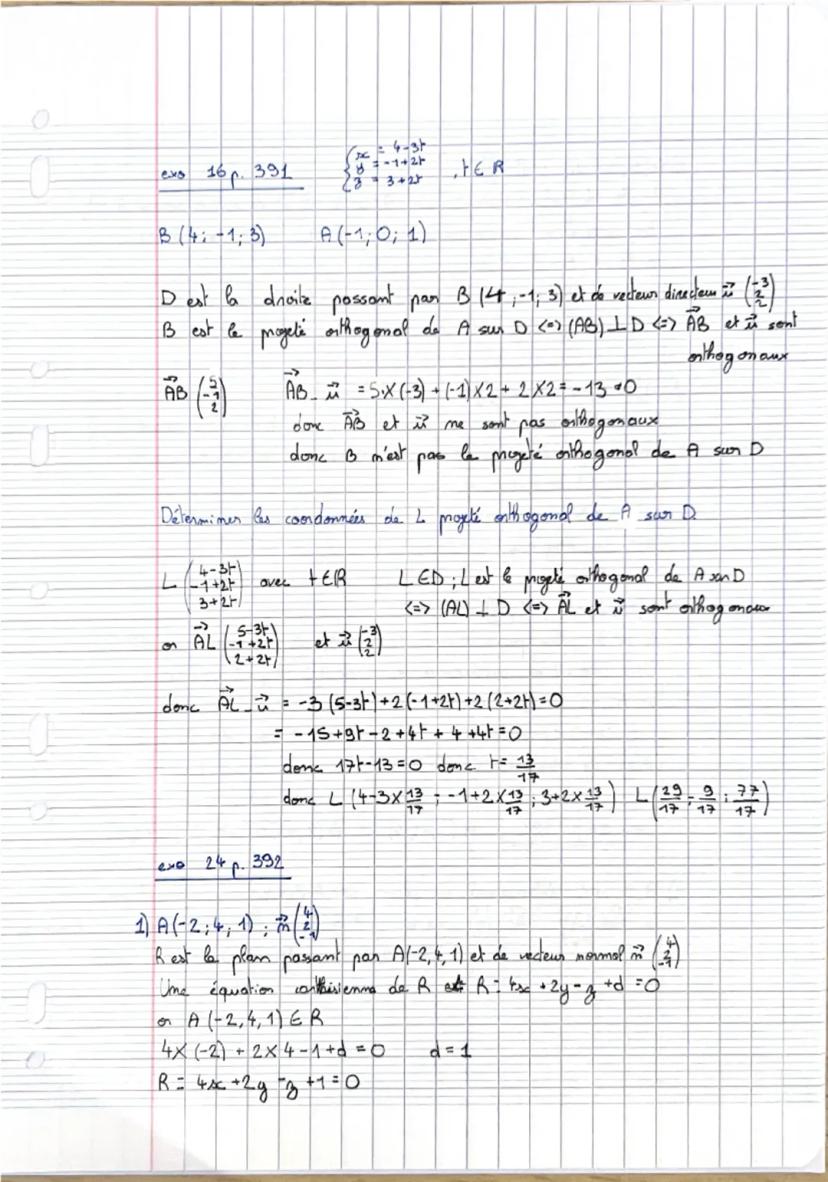 exo 16 p. 391 { x = 4-3t
y = -1+2t , t ∈ R
z = 3+2t
B (4; -1; 3) A(-1; 0; 1)
D est la droite passant par B (4; -1; 3) et de vecteur directeur u⃗ (-3 2 2)
B est le projeté orthogonal de A sur D <=> (AB) ⊥ D <=> AB⃗ et u⃗ sont
orthogonaux
AB⃗ (5 -1 2) AB⃗ . u⃗ = 5×(-3) + (-1)×2 + 2×2 = -13 ≠0
donc AB⃗ et u⃗ ne sont pas orthogonaux
donc B n'est pas le projeté orthogonal de A sur D
Déterminer les coordonnées de L projeté orthogonal de A sur D.
L (4-3t -1+2t 3+2t) avec t∈R L∈D ; L est le projeté orthogonal de A sur D
<=> (AL) ⊥ D <=> AL⃗ et u⃗ sont orthogonaux
or AL⃗ (5-3t -1+2t 2+2t) et u⃗ (-3 2 2)
donc AL⃗ . u⃗ = -3(5-3t)+2(-1+2t)+2(2+2t)=0
= -15+9t-2+4t+4+4t=0
donc 17t-13=0 donc t= 13/17
donc L (4-3×13/17 ; -1+2×13/17 ; 3+2×13/17) L(29/17 ; 9/17 ; 77/17)
exo 24 p. 392
1) A(-2; 4; 1) ; n⃗ (4 2 -1)
R est la plan passant par A(-2,4,1) et de vecteur normal n⃗ (4 2 -1)
Une équation carthisienne de R R: 4x +2y -z +d =0
or A(-2,4,1) ∈ R
4×(-2) + 2×4 -1+d =0 d=1
R = 4x +2y -z +1=0